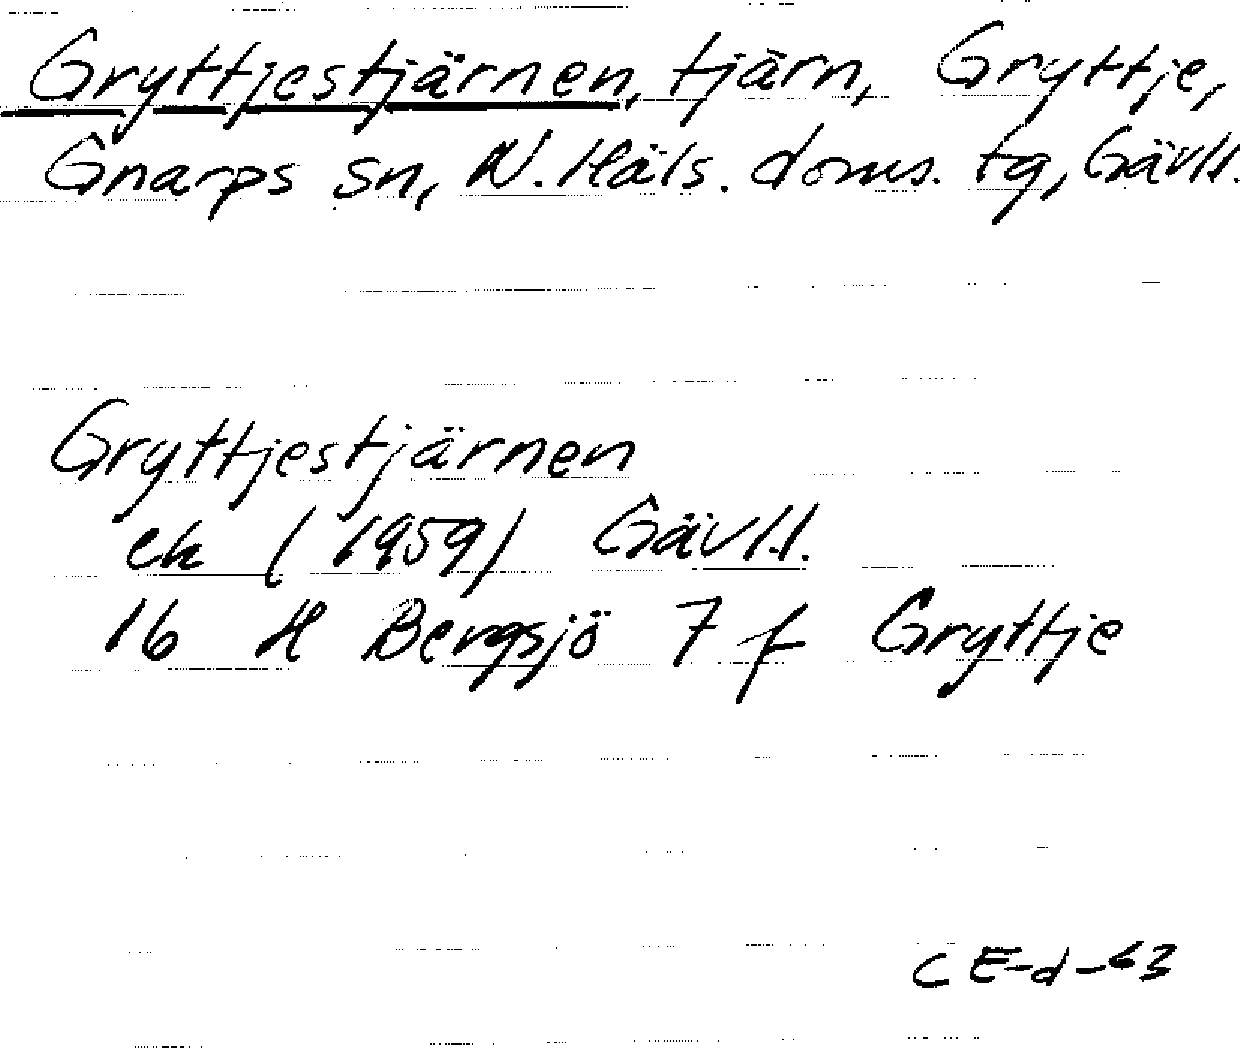 Gryttjestjärnen, tjärn, Gryttje,
Gnarps sn, N. Häls. doms. tg, Gävl.l.
Gryttjestjärnen
ek (1959) Gävl.l.
16 H Bergsjö 7 f Gryttje
CE-d-63